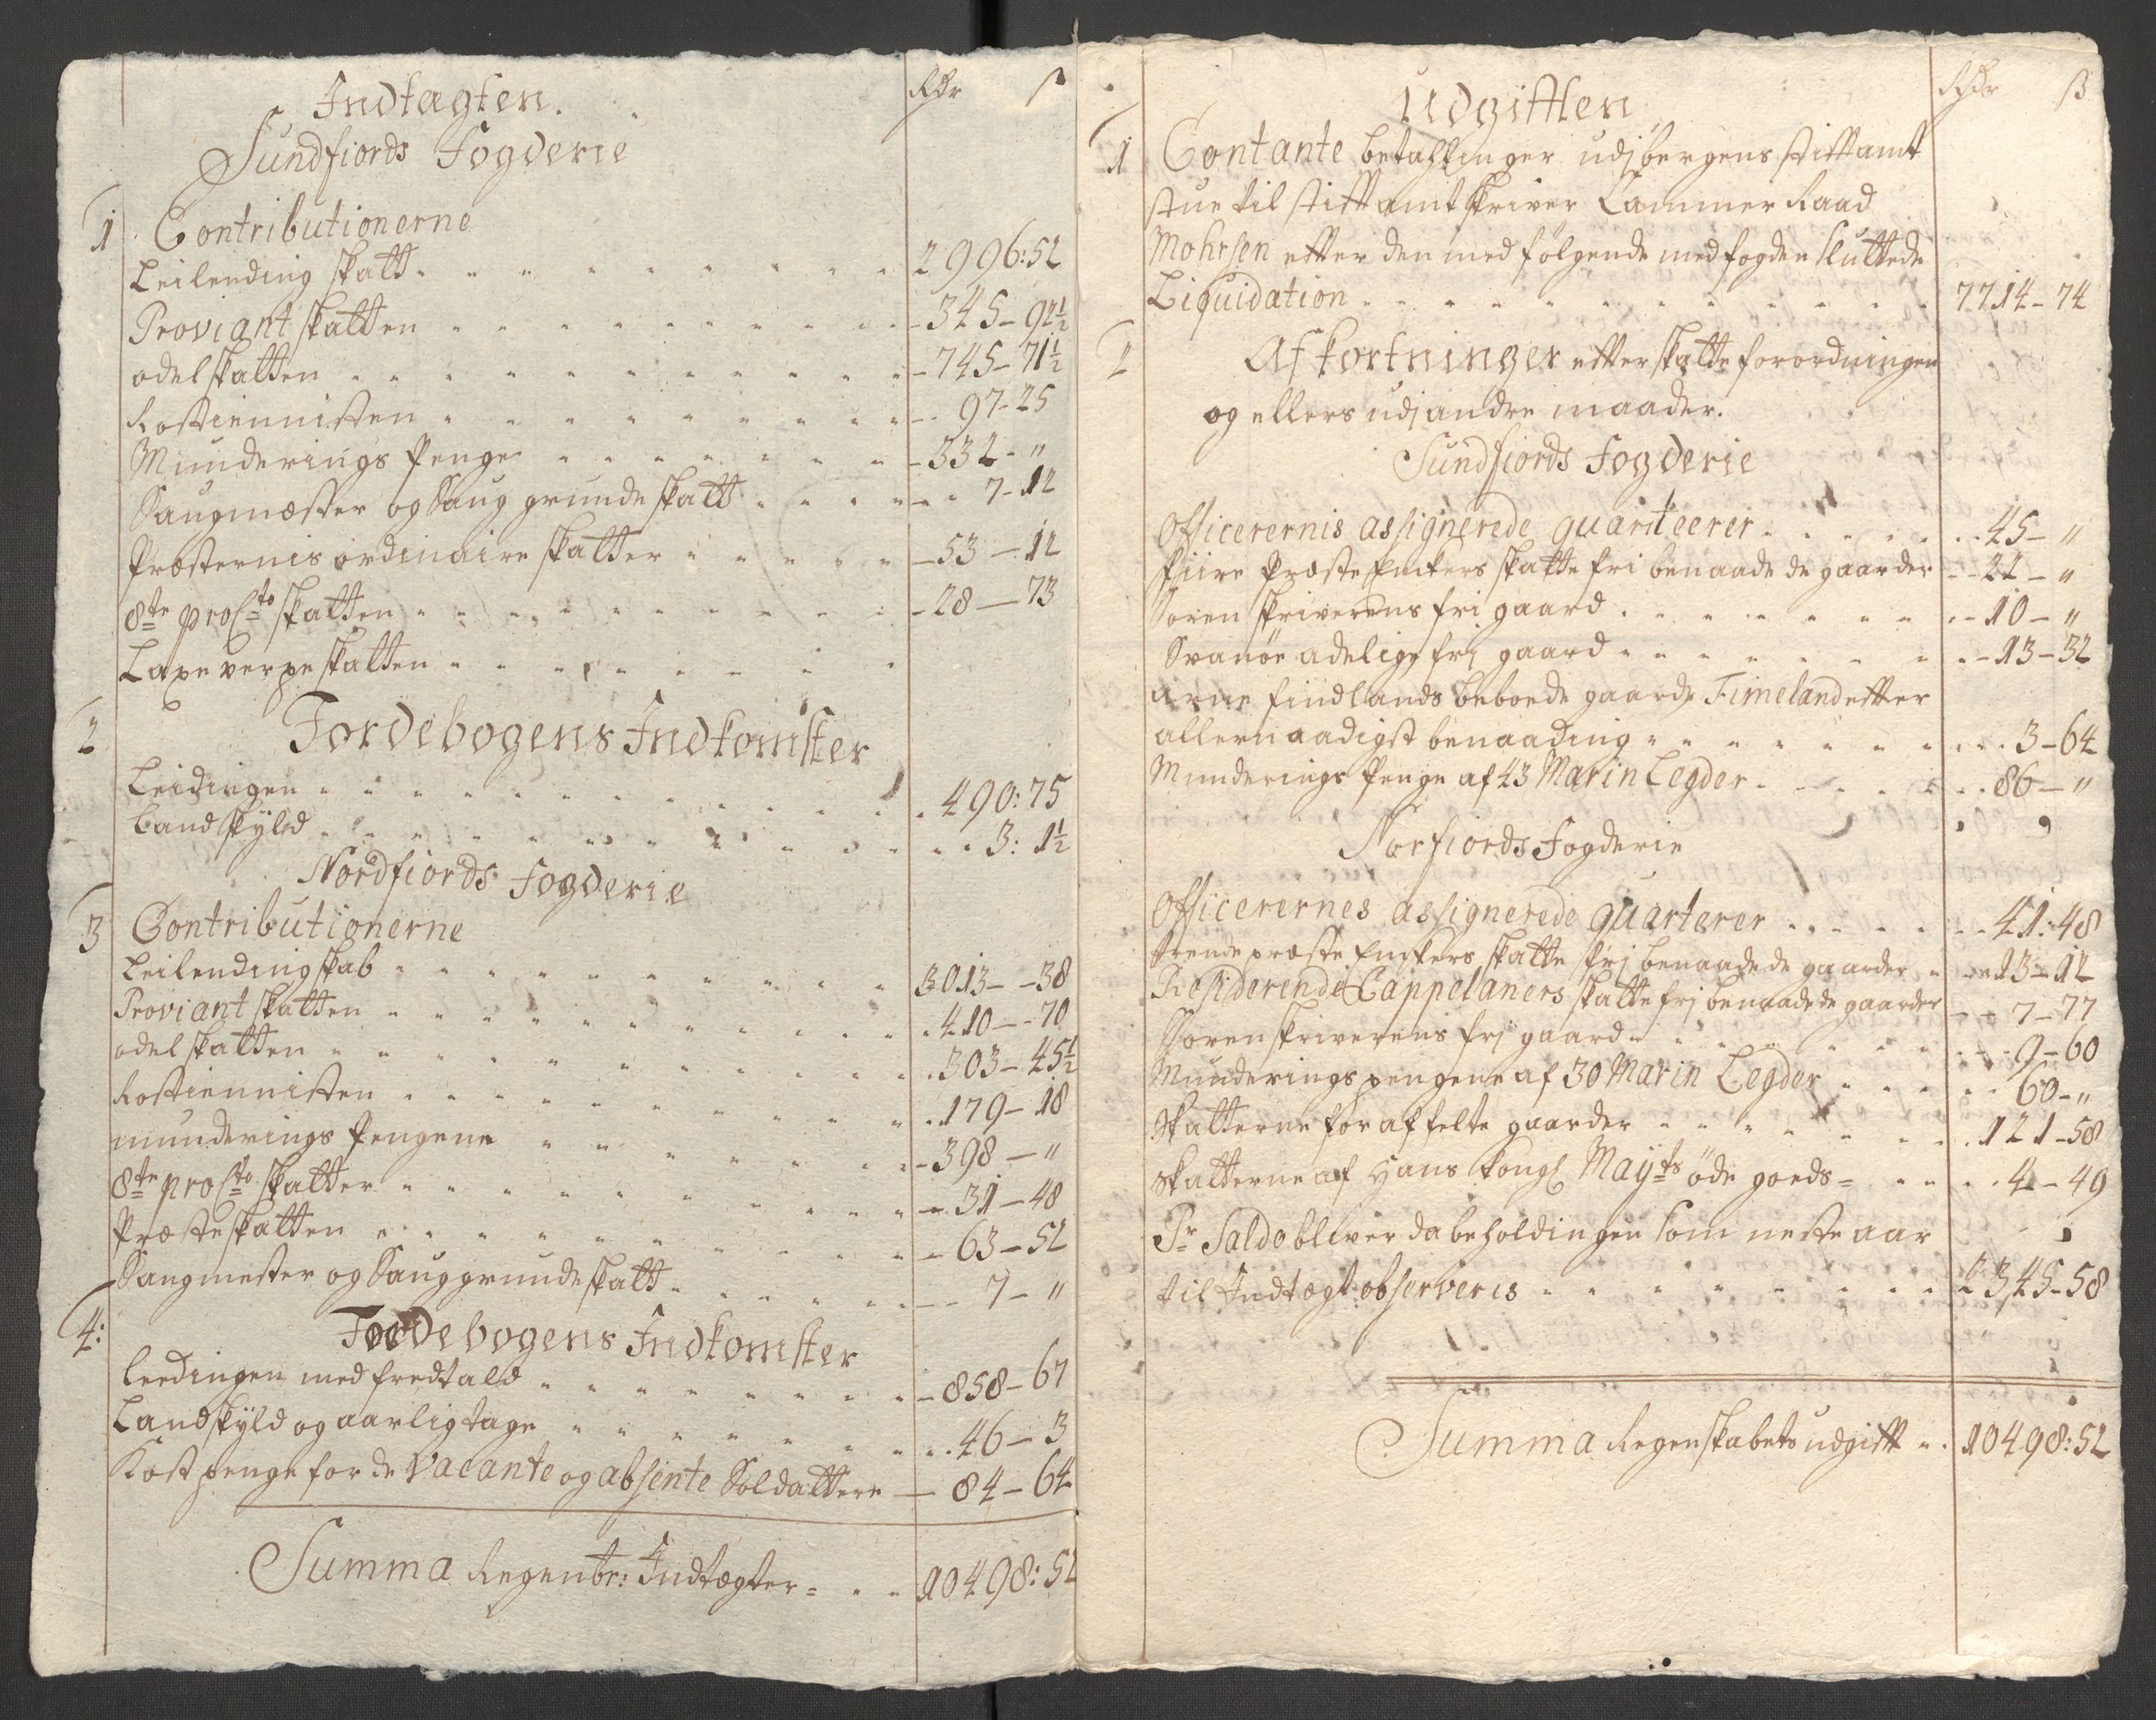 Indtagten.
Rdr ß
Sundfiords Fogderie
1 Contributionerne
Leilending skatt 2996:52
Proviant skatten 345-92½
odel skatten 745-71½
Rostiennisten 97-25
Munderings Penge 332-"
Saugmester og Saug grunde skatt 7-12
Presternis ordinaire skatter 53-12
8te pro Cto skatten 28-73
Laxe verpe skatten
2 Jordebogens Indkomster
Leidingen 490:75
Landskyld 3:1½
Nordfiords Fogderie
3 Contributionerne
Leilending skab 3013-38
Proviant skatten 410-70
odel skatten 303-45½
Rostiennisten 179-18
munderings Pengene 398-"
8te pro Cto skatter 31-48
Præste skatten 63-52
Saugmester og Sauggrunde skatt 7-"
4: Jordebogens Indkomster
Leedingen med fredtold 858-67
Landskyld og aarligtage 46-3
Kostpenge for de Vacante og absente Soldattere 84-64
Summa Regenbr: Indtægter 10498:52
Udgifften
Rdr ß
1 Contante betahlinger udj bergens stifftamt
stue til stifftamtskriver Cammer Raad
Mohrsen efter den med følgende med fogden sluttede
Liquidation 7714-74
2 Afkortninger efter skatte forordningen
og ellers udj andre maader.
Sundfiords Fogderie
Officerernis assignerede quarteerer 45-"
fiire Præste Enckers skatte fri benaadede gaarder 22-"
Soren skriverens fri gaard 10-"
Svanöe adelige fri gaard 13-32
arne findlands beboede gaard Timeland efter
allernaadigst benaading 3-64
Munderings Penge af 43 Marin Legder 86-"
Norfiords Fogderie
Officerernes assignerede quarterer 41:48
trende præste Enckers skatte frj benaadede gaarder 13-12
Residerende Cappelaners skatte frj benaadede gaarder 7-77
Sorenskriverens frj gaard 9-60
Munderings pengene af 30 Marin Legder 60-"
Skatterne for affelte gaarder 121-58
Skatterne af Hans Kongl Mayts öde goeds 4-49
Pr Saldo bliver da beholdingen som neste aar
til Indtægt observeris 2345-58
Summa Regenskabets udgifft 10498:52